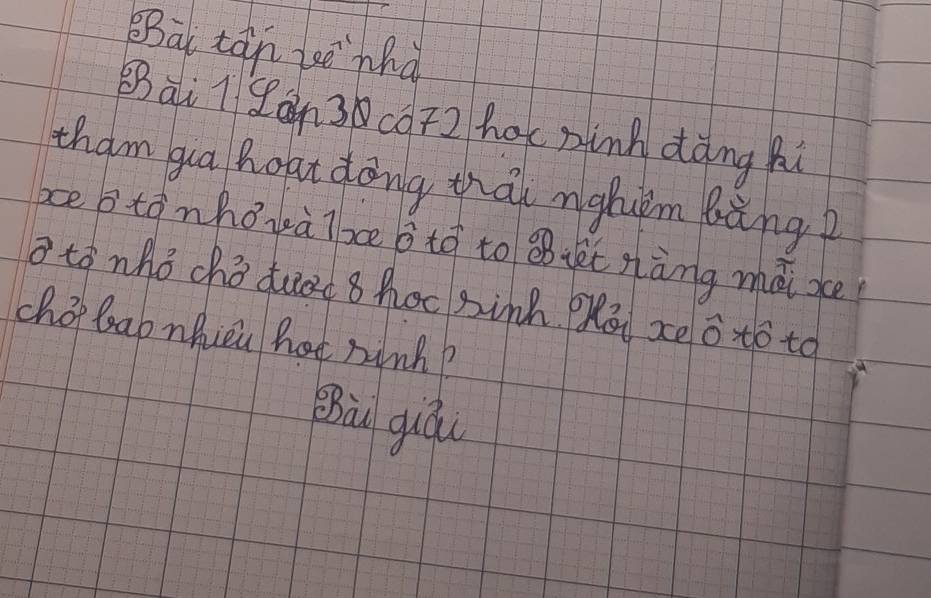 Bài tập về nhà
Bài 1 Lớp 3D có 72 học sinh đăng kí
tham gia hoạt động trải nghiệm bằng 2
xe ô tô nhỏ và 1 xe ô tô to Biết rằng mỗi xe
ô tô nhỏ chở được 8 học sinh. Hỏi xe ô tô to
chở bao nhiêu học sinh?
Bài giải